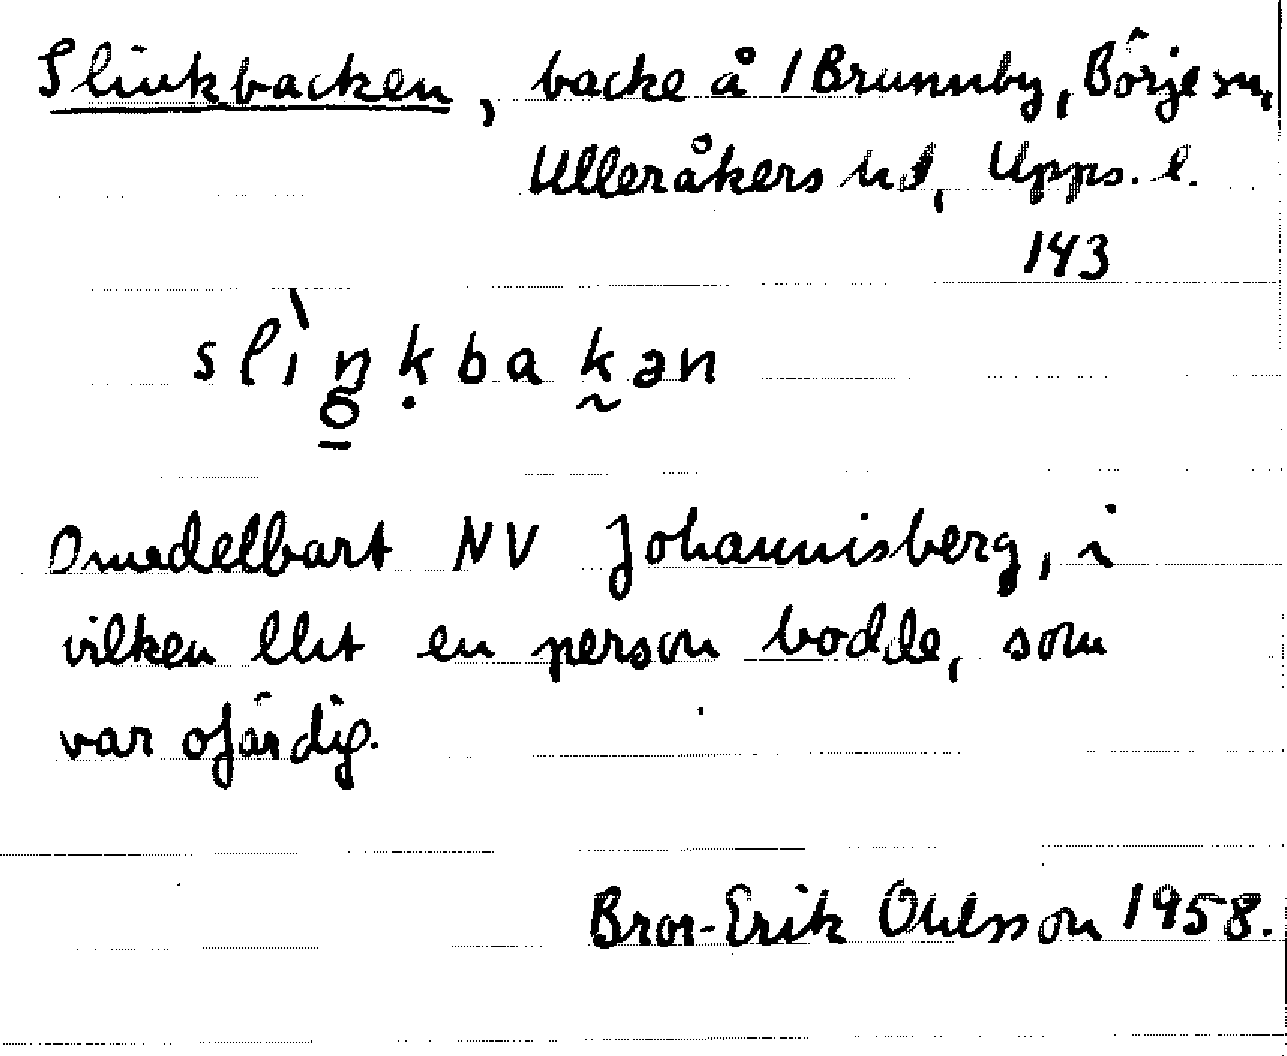 Slinkbacken, backe å 1 Brunnby, Börje sn,
Ulleråkers hd, Upps. l.
143
slìŋkbakən
Omedelbart NV Johannisberg, i
vilken llst en person bodde, som
var ofärdig.
Bror-Erik Ohlsson 1958.